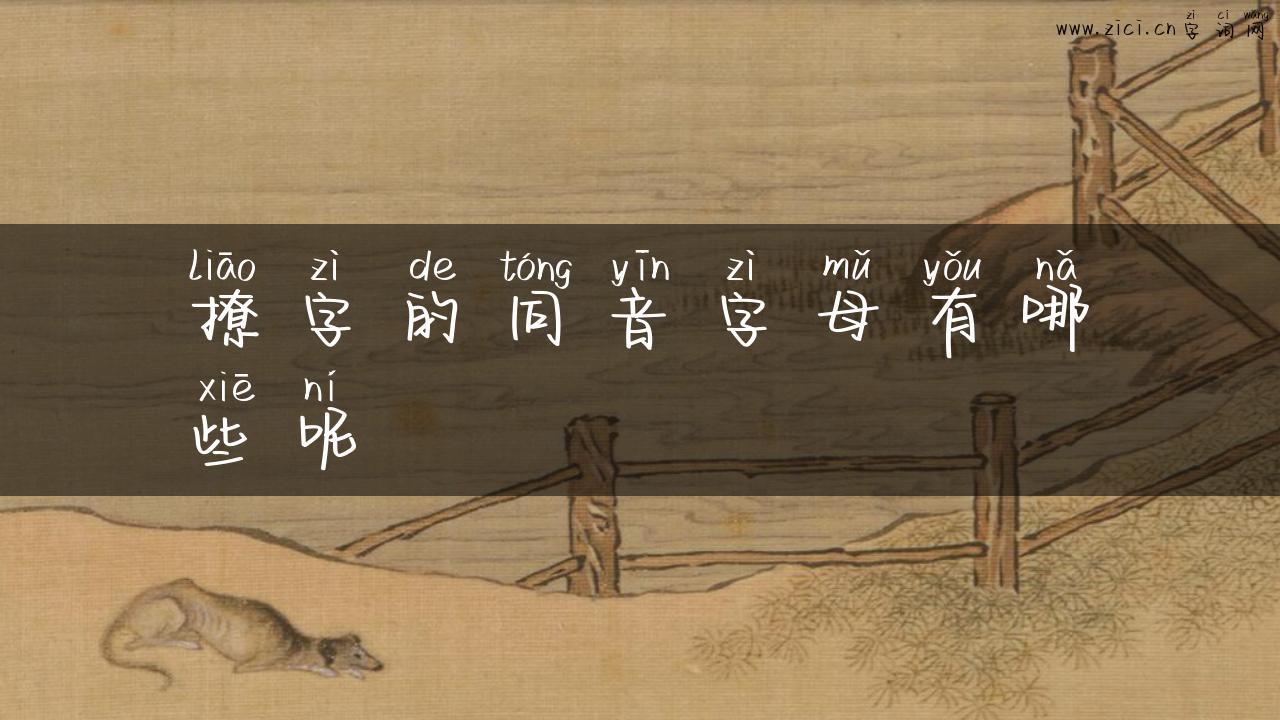 zì cí wǎng
www.zici.cn 字词网
liāo zì de tóng yīn zì mǔ yǒu nǎ
撩字的同音字母有哪
xiē ní
些呢